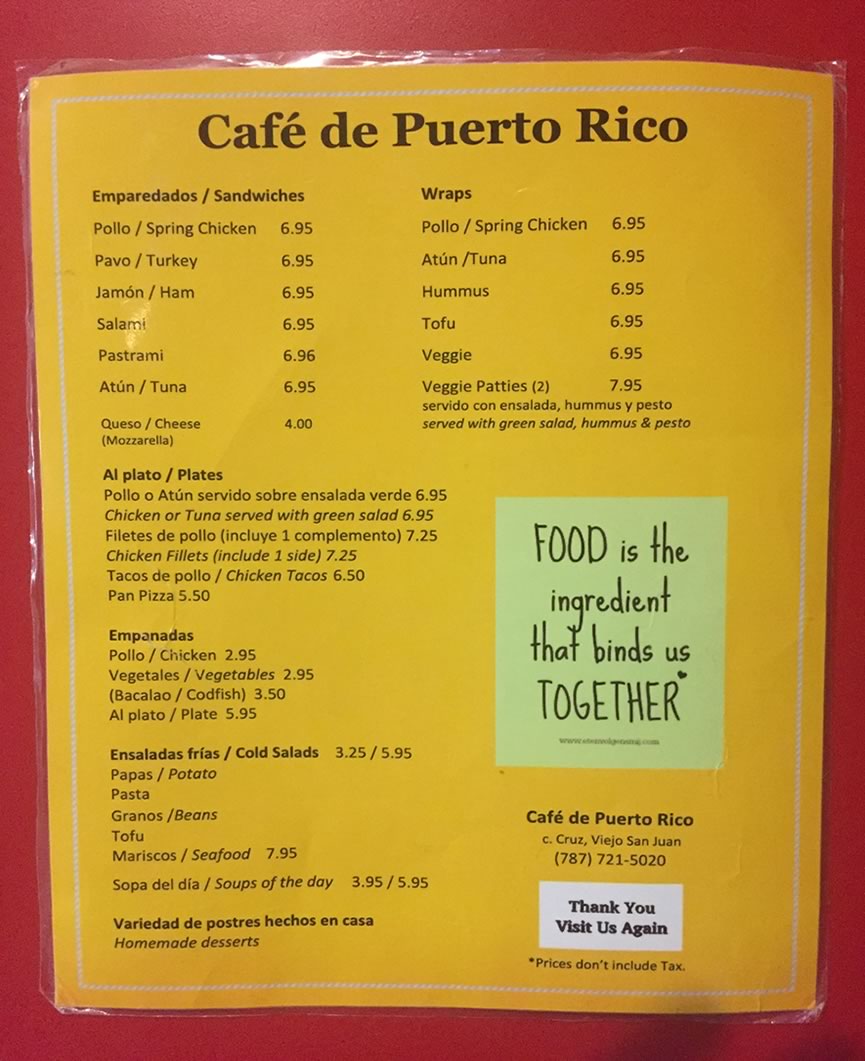 Café de Puerto Rico
Emparedados / Sandwiches
Pollo / Spring Chicken 6.95
Pavo / Turkey 6.95
Jamón / Ham 6.95
Salami 6.95
Pastrami 6.96
Atún / Tuna 6.95
Queso / Cheese 4.00
(Mozzarella)
Wraps
Pollo / Spring Chicken 6.95
Atún /Tuna 6.95
Hummus 6.95
Tofu 6.95
Veggie 6.95
Veggie Patties (2) 7.95
servido con ensalada, hummus y pesto
served with green salad, hummus & pesto
Al plato / Plates
Pollo o Atún servido sobre ensalada verde 6.95
Chicken or Tuna served with green salad 6.95
Filetes de pollo (incluye 1 complemento) 7.25
Chicken Fillets (include 1 side) 7.25
Tacos de pollo / Chicken Tacos 6.50
Pan Pizza 5.50
Empanadas
Pollo / Chicken 2.95
Vegetales / Vegetables 2.95
(Bacalao / Codfish) 3.50
Al plato / Plate 5.95
Ensaladas frías / Cold Salads 3.25 / 5.95
Papas / Potato
Pasta
Granos /Beans
Tofu
Mariscos / Seafood 7.95
Sopa del día / Soups of the day 3.95 / 5.95
Variedad de postres hechos en casa
Homemade desserts
FOOD is the
ingredient
that binds us
TOGETHER
Café de Puerto Rico
c. Cruz, Viejo San Juan
(787) 721-5020
Thank You
Visit Us Again
*Prices don't include Tax.